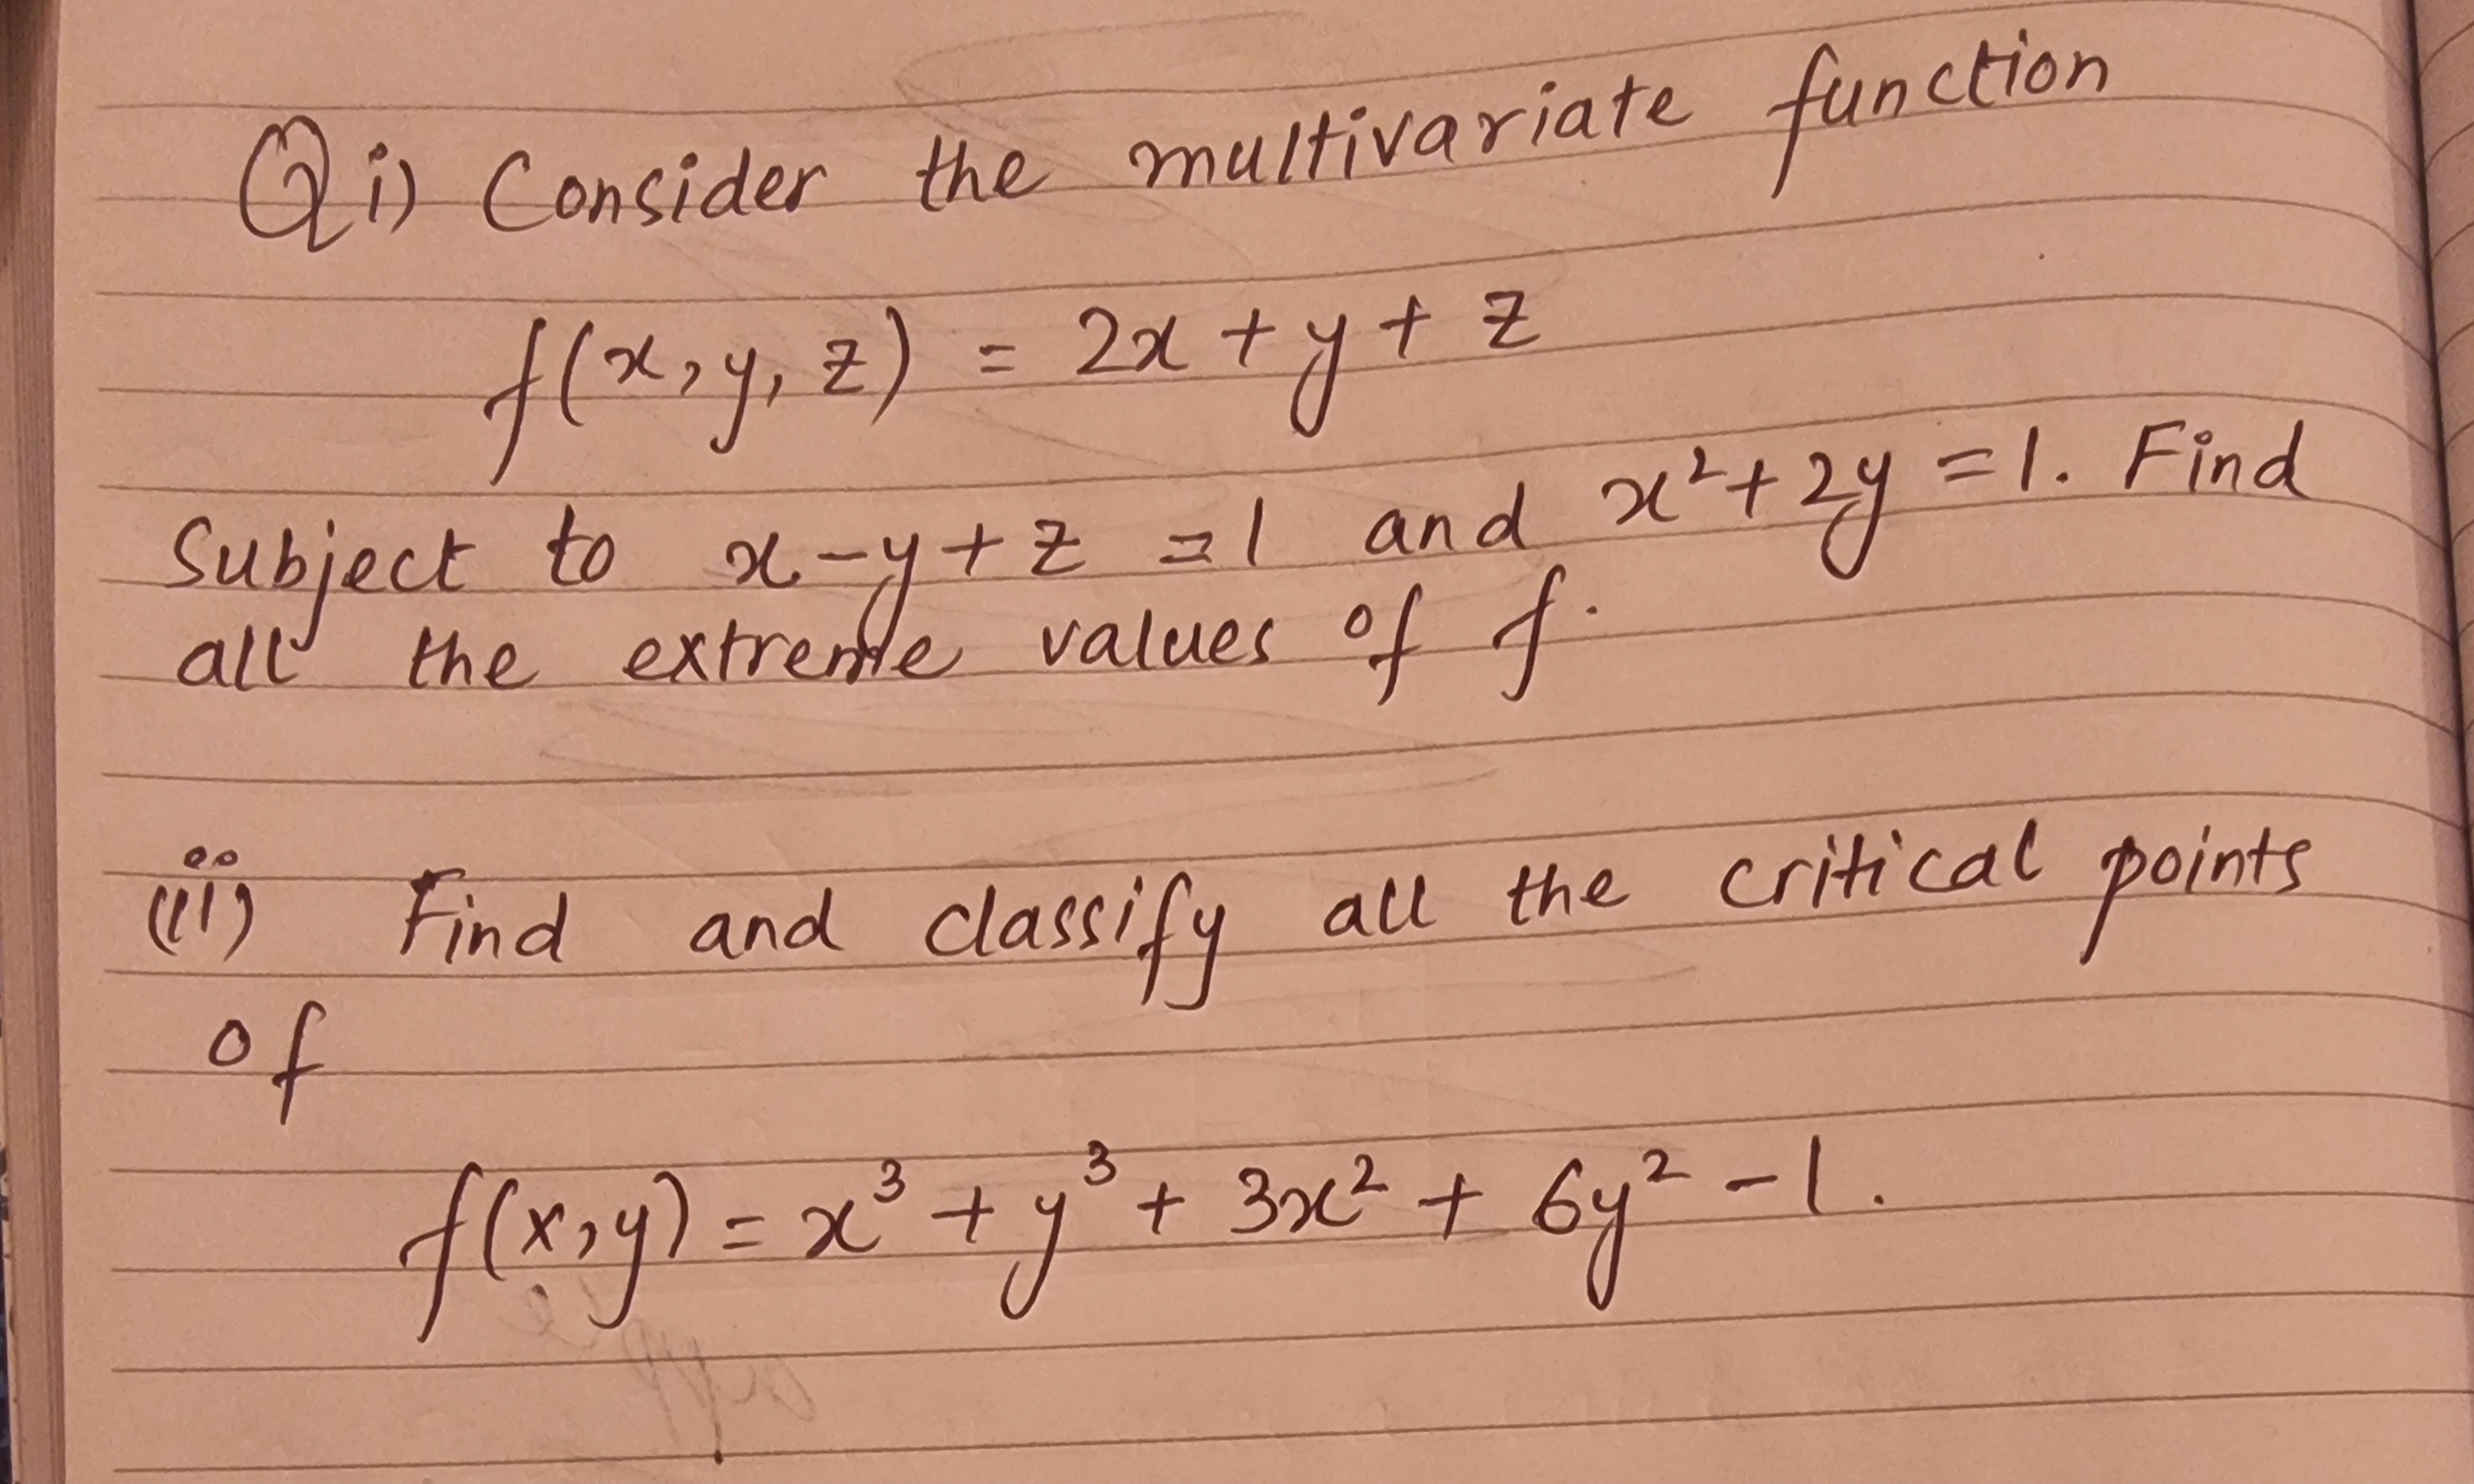 Q i) Consider the multivariate function
f(x, y, z) = 2x + y + z
Subject to x - y + z = 1 and x² + 2y = 1. Find
all the extreme values of f.
(ii) Find and classify all the critical points
of
f(x, y) = x³ + y³ + 3x² + 6y² - 1.